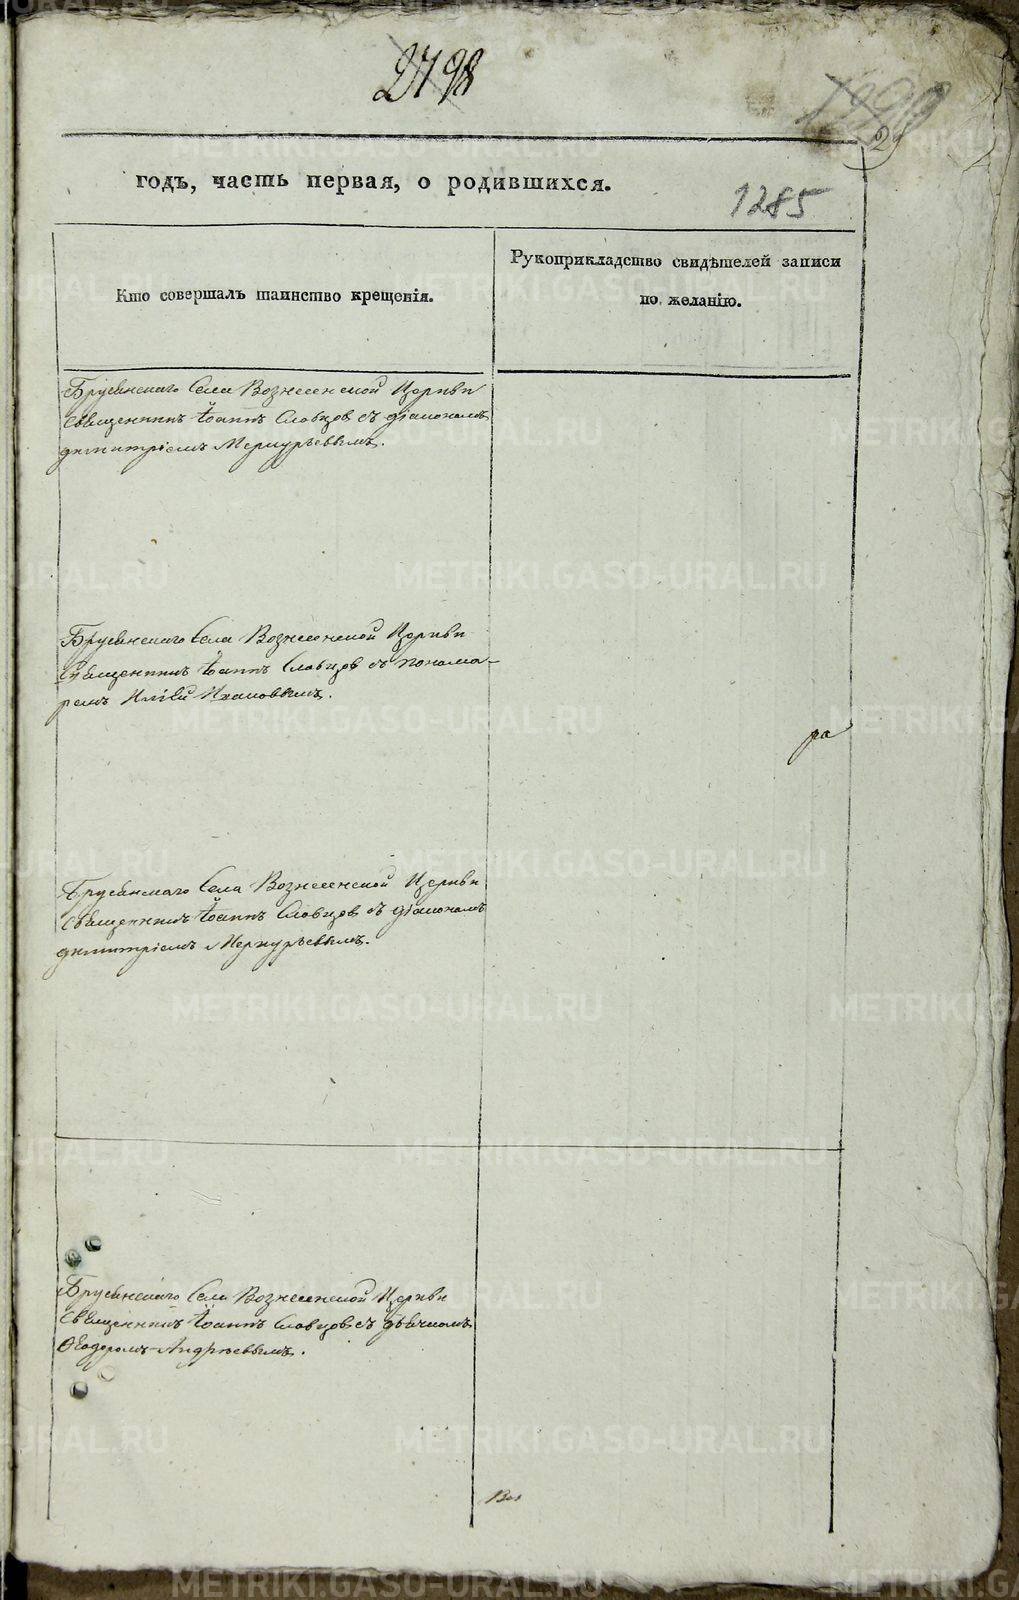 2798
29
годъ, часть первая, о родившихся.
1285
Кто совершалъ таинство крещенія.
Рукоприкладство свидѣтелей записи
по желанію.
Брусянскаго Села Вознесенской Церкви
Священникъ Іоаннъ Словцовъ съ діакономъ
димитріемъ Меркурьевымъ.
Брусянскаго Села Вознесенской Церкви
Священникъ Іоаннъ Словцовъ съ понома-
ремъ Иліей
ра
Брусянскаго Села Вознесенской Церкви
Священникъ Іоаннъ Словцовъ съ діакономъ
димитріемъ Меркурьевымъ.
Брусянскаго Села Вознесенской Церкви
Священникъ Іоаннъ Словцовъ съ дьячкомъ
Ѳеодоромъ Андреевымъ.
METRIKI.GASO-URAL.RU